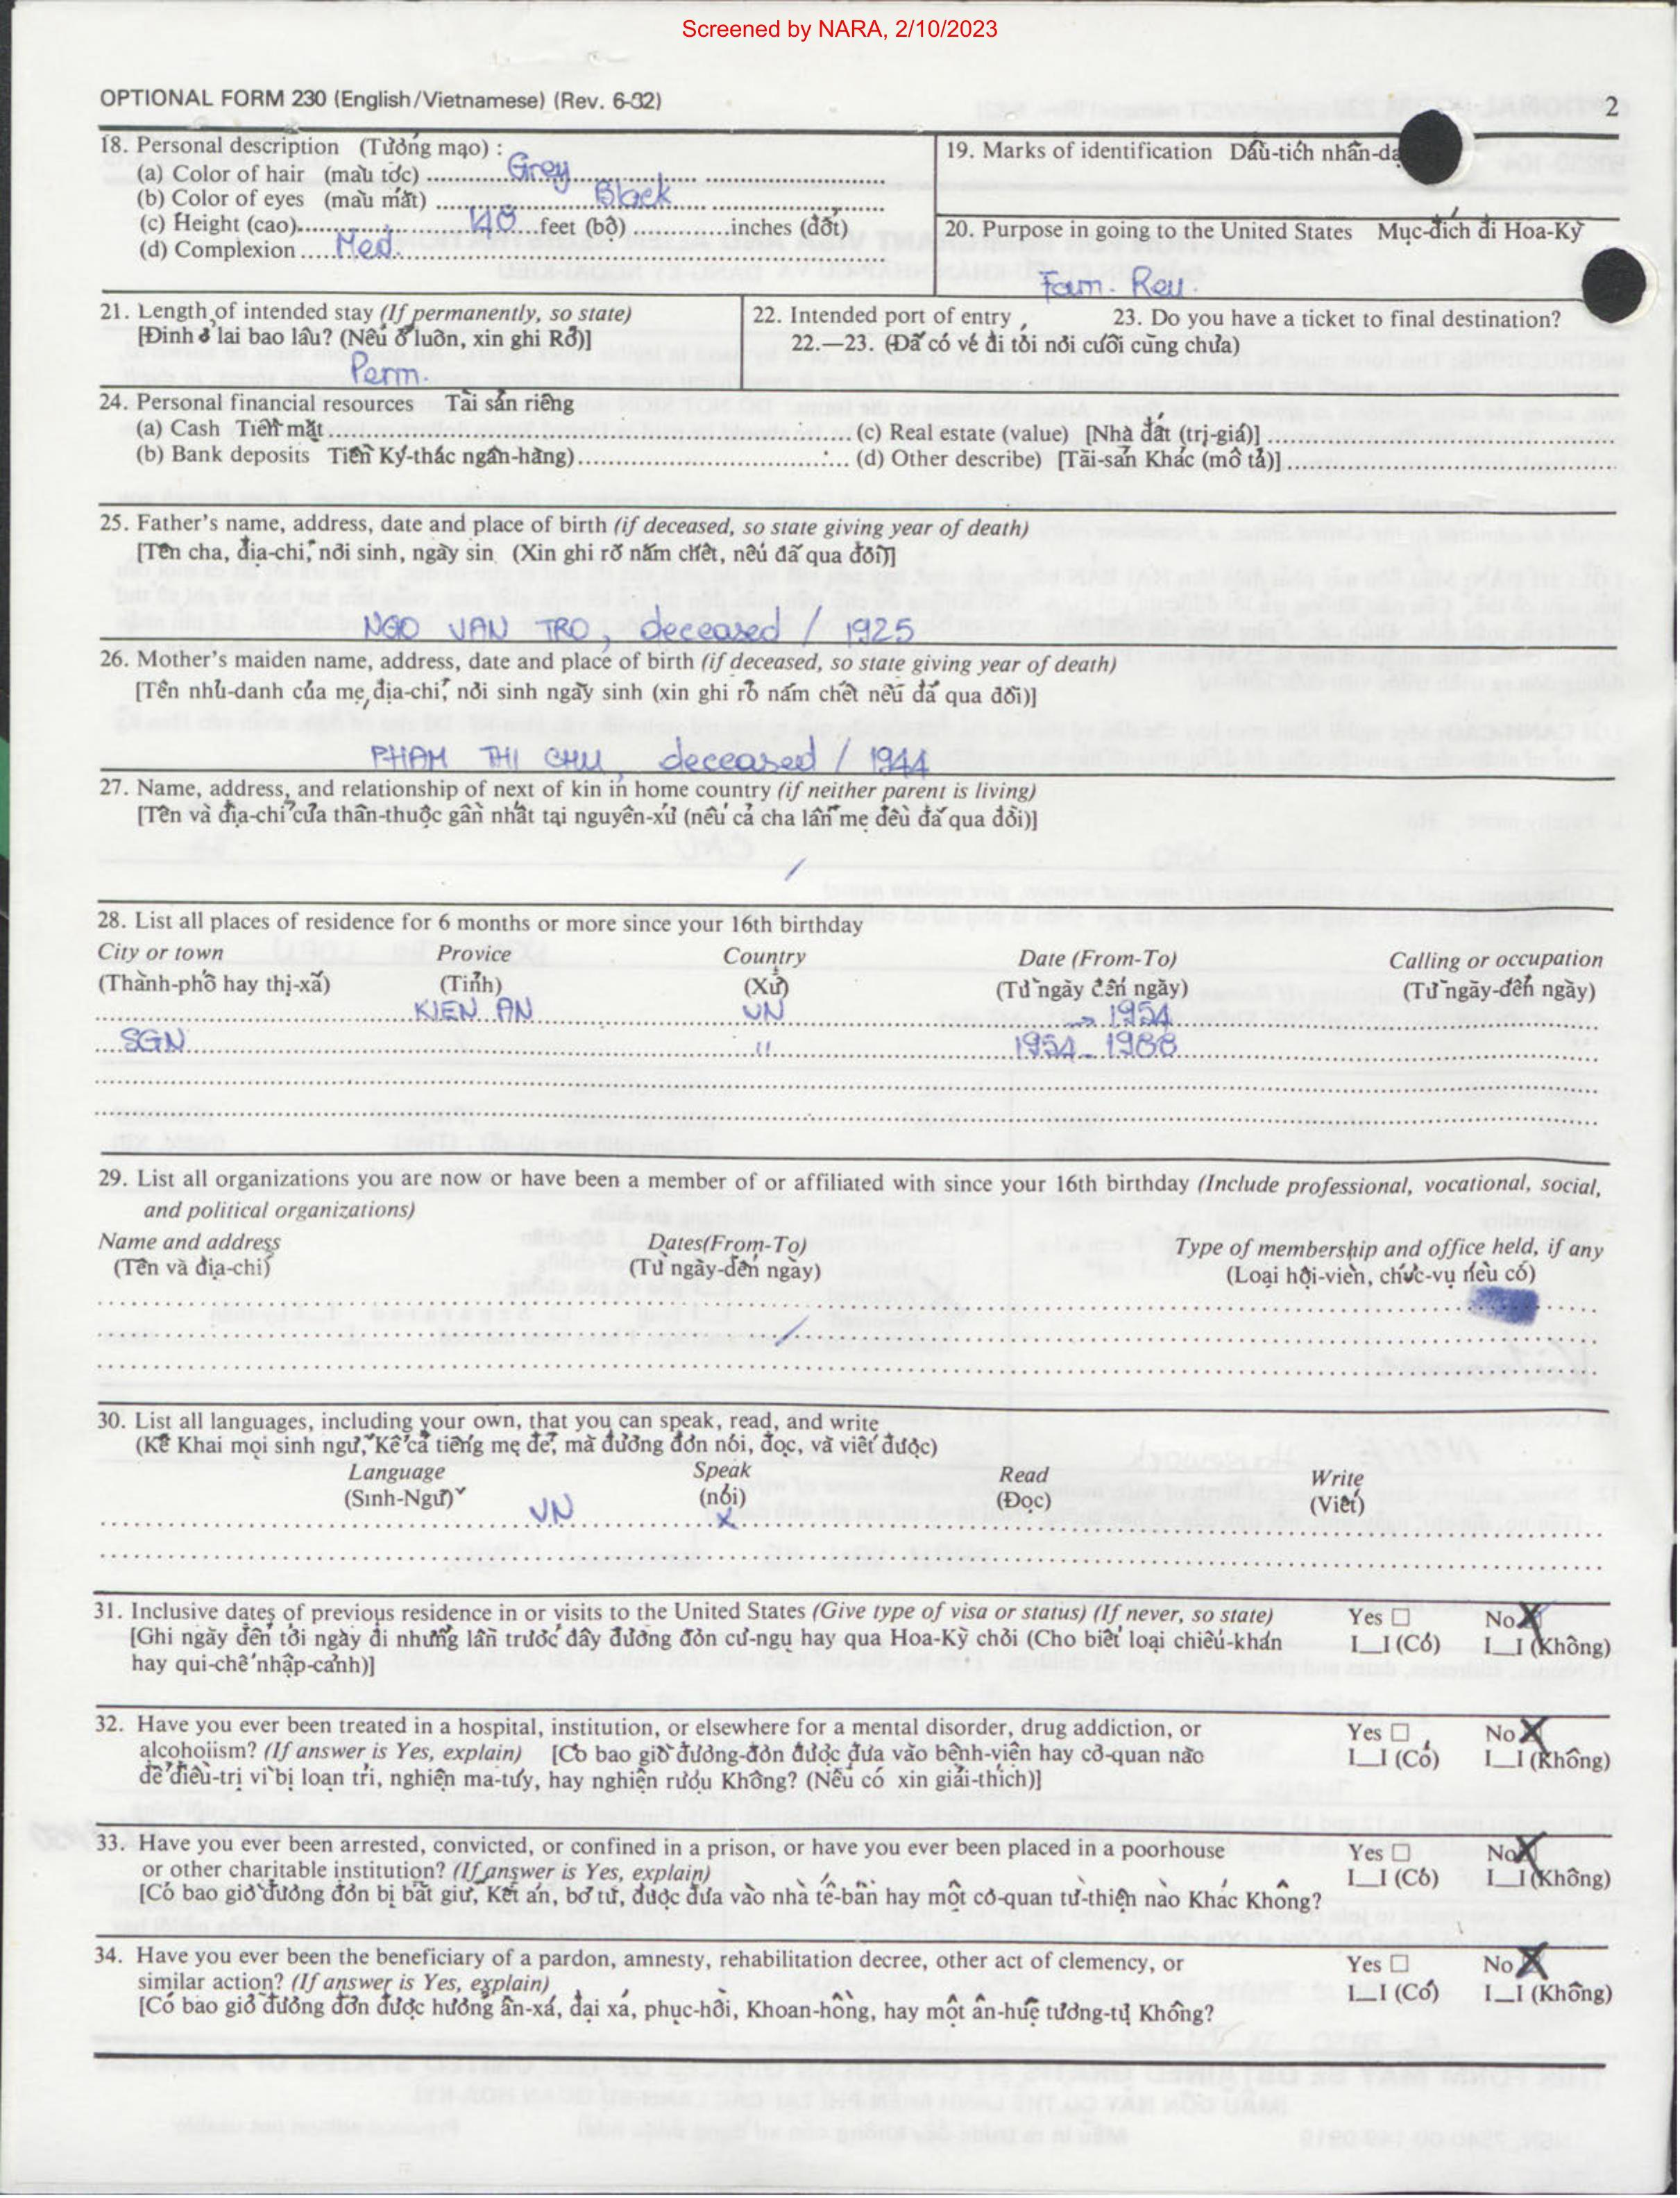 Screened by NARA, 2/10/2023
OPTIONAL FORM 230 (English/Vietnamese) (Rev. 6-82)
2
18. Personal description (Tướng mạo) :
(a) Color of hair (màu tóc) Grey
(b) Color of eyes (màu mắt) Black
(c) Height (cao) 148 feet (bộ) inches (đốt)
(d) Complexion Med.
19. Marks of identification Dấu-tích nhân-dạ
20. Purpose in going to the United States Mục-đích đi Hoa-Kỳ
Fam. Reu.
21. Length of intended stay (If permanently, so state)
[Định ở lai bao lâu? (Nếu ở luôn, xin ghi Rõ)]
Perm.
22. Intended port of entry 23. Do you have a ticket to final destination?
22.—23. (Đã có vé đi tới nơi cuối cùng chưa)
24. Personal financial resources Tài sản riêng
(a) Cash Tiền mặt (c) Real estate (value) [Nhà đất (trị-giá)]
(b) Bank deposits Tiền Ký-thác ngân-hàng) (d) Other describe) [Tài-sản Khác (mô tả)]
25. Father's name, address, date and place of birth (if deceased, so state giving year of death)
[Tên cha, địa-chỉ, nơi sinh, ngày sin (Xin ghi rõ năm chết, nếu đã qua đời)]
NGO VAN TRO, deceased / 1925
26. Mother's maiden name, address, date and place of birth (if deceased, so state giving year of death)
[Tên nhũ-danh của mẹ, địa-chỉ, nơi sinh ngày sinh (xin ghi rõ năm chết nếu đã qua đời)]
PHAM THI CHU, deceased / 1944
27. Name, address, and relationship of next of kin in home country (if neither parent is living)
[Tên và địa-chỉ của thân-thuộc gần nhất tại nguyên-xứ (nếu cả cha lẫn mẹ đều đã qua đời)]
/
28. List all places of residence for 6 months or more since your 16th birthday
City or town Provice Country Date (From-To) Calling or occupation
(Thành-phố hay thị-xã) (Tỉnh) (Xứ) (Từ ngày đến ngày) (Từ ngày-đến ngày)
KIEN AN VN → 1954
SGN " 1954 - 1988
29. List all organizations you are now or have been a member of or affiliated with since your 16th birthday (Include professional, vocational, social,
and political organizations)
Name and address Dates(From-To) Type of membership and office held, if any
(Tên và địa-chỉ) (Từ ngày-đến ngày) (Loại hội-viên, chức-vụ nếu có)
/
30. List all languages, including your own, that you can speak, read, and write
(Kê Khai mọi sinh ngữ, Kể cả tiếng mẹ đẻ, mà đương đơn nói, đọc, và viết được)
Language Speak Read Write
(Sinh-Ngữ) (nói) (Đọc) (Viết)
VN X
31. Inclusive dates of previous residence in or visits to the United States (Give type of visa or status) (If never, so state) Yes ☐ No X
[Ghi ngày đến tới ngày đi những lần trước đây đương đơn cư-ngụ hay qua Hoa-Kỳ chơi (Cho biết loại chiếu-khán I_I (Có) I_I (Không)
hay qui-chế nhập-cảnh)]
32. Have you ever been treated in a hospital, institution, or elsewhere for a mental disorder, drug addiction, or Yes ☐ No X
alcohoiism? (If answer is Yes, explain) [Có bao giờ đương-đơn được đưa vào bệnh-viện hay cơ-quan nào I_I (Có) I_I (Không)
để điều-trị vì bị loạn trí, nghiện ma-túy, hay nghiện rượu Không? (Nếu có xin giải-thích)]
33. Have you ever been arrested, convicted, or confined in a prison, or have you ever been placed in a poorhouse Yes ☐ No X
or other charitable institution? (If answer is Yes, explain)
[Có bao giờ đương đơn bị bắt giữ, Kết án, bỏ tù, được đưa vào nhà tế-bần hay một cơ-quan từ-thiện nào Khác Không? I_I (Có) I_I (Không)
34. Have you ever been the beneficiary of a pardon, amnesty, rehabilitation decree, other act of clemency, or Yes ☐ No X
similar action? (If answer is Yes, explain)
[Có bao giờ đương đơn được hưởng ân-xá, đại xá, phục-hồi, Khoan-hồng, hay một ân-huệ tương-tự Không? I_I (Có) I_I (Không)